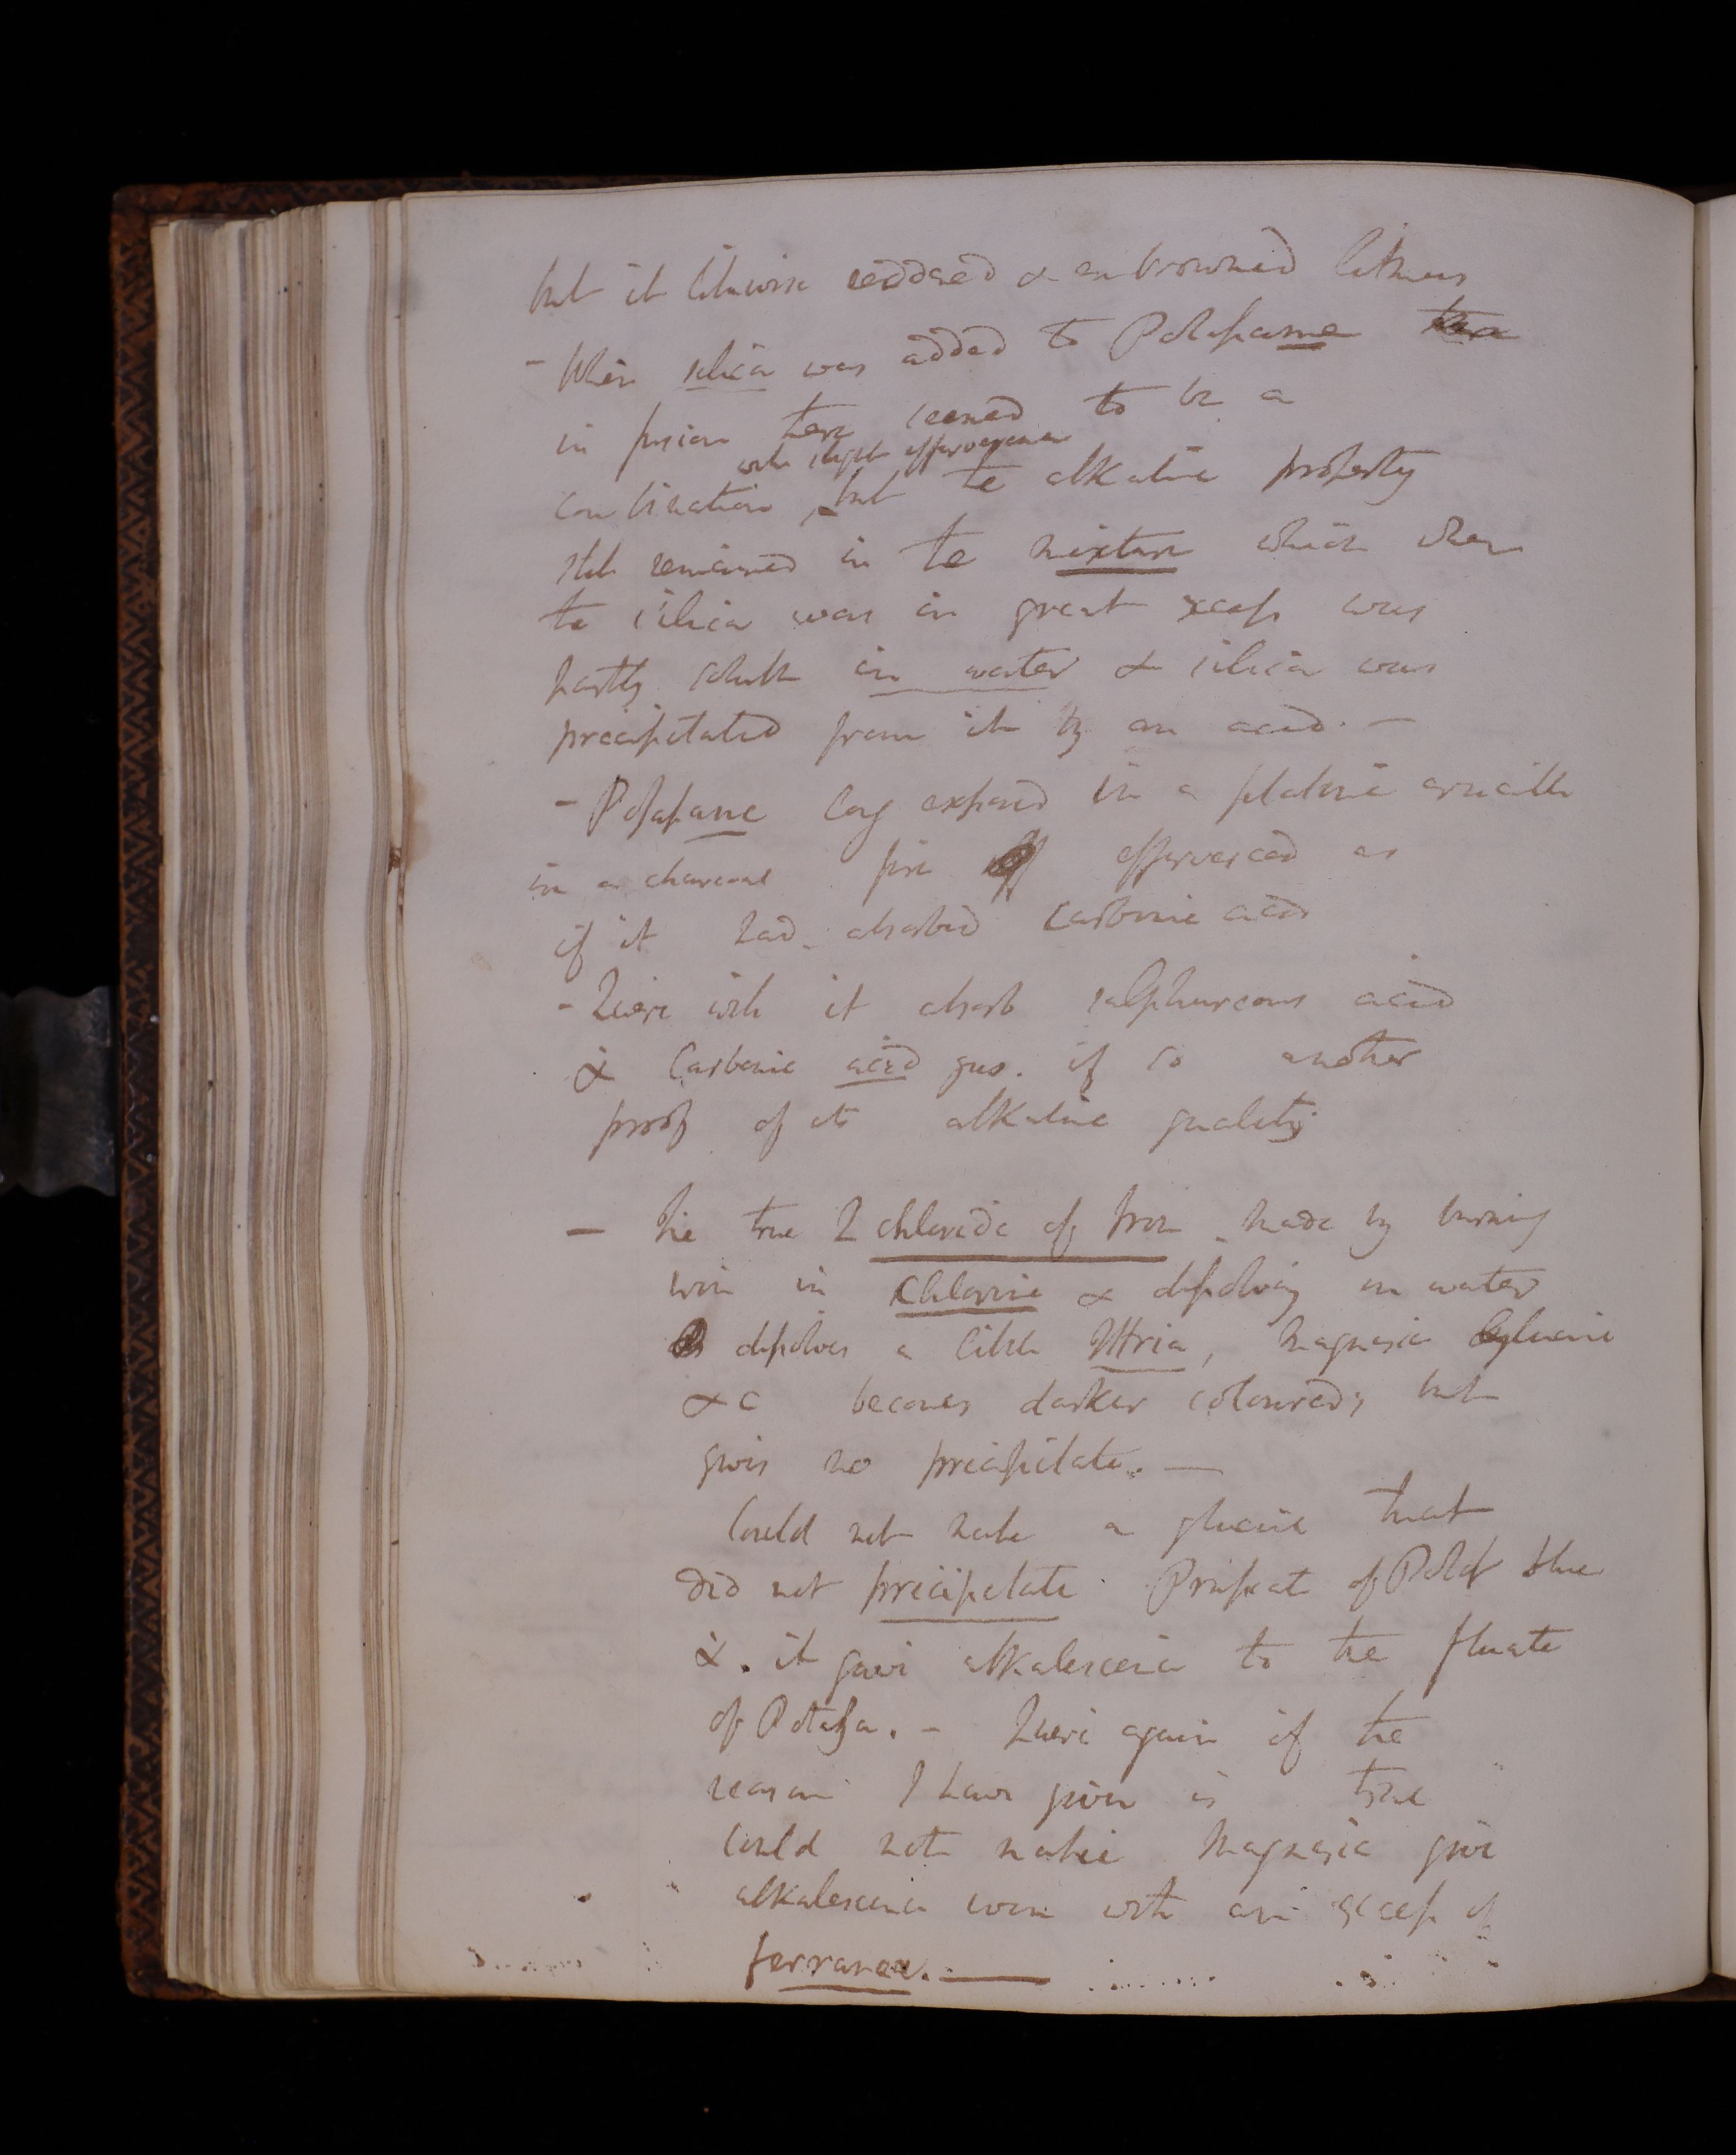 but it likewise reddened & embrowned litmus
- When silica was added to Potassane
in fusion there seemed to be a
with slight effervescence
combination, but the alkaline property
still remained in the mixture which when
the silica was in great xcess was
partly soluble in water & silica was
precipitated from it by an acid. —
- Potassane long exposed in a platina crucible
in a charcoal fire effervesced as
if it had absorbed carbonic acid
- Quere will it absorb sulphureous acid
& Carbonic acid gas. if so another
proof of its alkaline quality
— The true 2 chloride of Iron made by burning
iron in Chlorine & dissolving in water
dissolves a little Yttria, Magnesia glucine
&c becomes darker coloured; but
gives no precipitate. —
Could not make a glucine that
did not precipitate Prussiat of Potash blue
& it gives alkalescence to the fluate
of Potassa. - Quere again if the
reason I have given is true
Could not make Magnesia give
alkalescence even with an excess of
ferranea. —